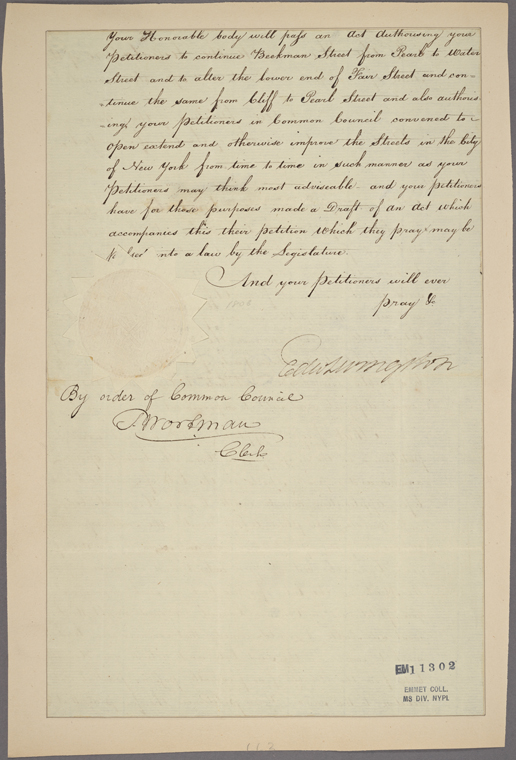 Your Honorable body will pass an Act authorising your
Petitioners to continue Beekman Street from Pearl to Water
Street and to alter the lower end of Fair Street and con-
-tinue the same from Cliff to Pearl Street and also authoris
-ing your Petitioners in Common Council convened to
open extend and otherwise improve the Streets in the City
of New York from time to time in such manner as your
Petitioners may think most adviseable - and your petitioners
have for those purposes made a Draft of an Act which
accompanies this their petition which they pray may be
into a law by the Legislature.
And your petitioners will ever
pray &c
Edw Livingston
By order of Common Council
T Wortman
Clerk
EM11302
EMMET COLL.
MS DIV. NYPL